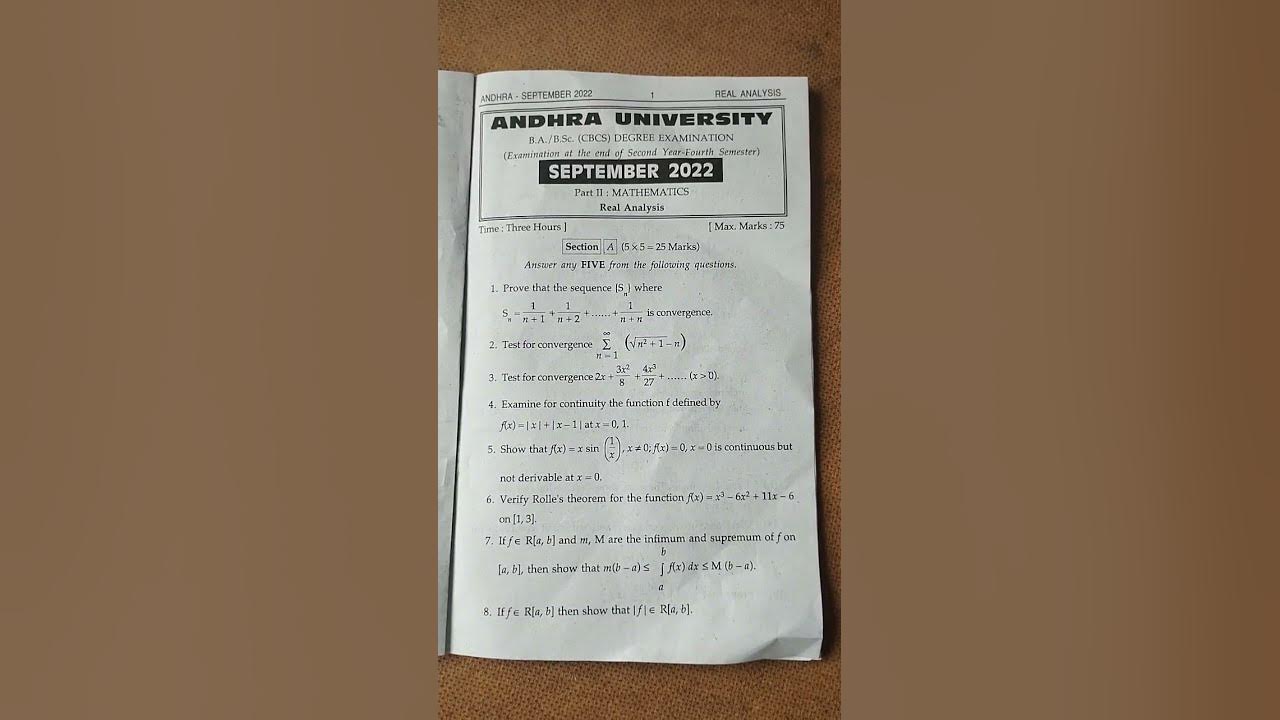 ANDHRA - SEPTEMBER 2022 1 REAL ANALYSIS
ANDHRA UNIVERSITY
B.A./B.Sc. (CBCS) DEGREE EXAMINATION
(Examination at the end of Second Year-Fourth Semester)
SEPTEMBER 2022
Part II : MATHEMATICS
Real Analysis
Time : Three Hours ] [ Max. Marks : 75
Section A (5 × 5 = 25 Marks)
Answer any FIVE from the following questions.
1. Prove that the sequence {Sₙ} where
Sₙ = 1/(n + 1) + 1/(n + 2) + ...... + 1/(n + n) is convergence.
2. Test for convergence ∑_{n = 1}^{∞} (√(n² + 1) – n)
3. Test for convergence 2x + 3x²/8 + 4x³/27 + ...... (x > 0).
4. Examine for continuity the function f defined by
f(x) = | x | + | x – 1 | at x = 0, 1.
5. Show that f(x) = x sin (1/x), x ≠ 0; f(x) = 0, x = 0 is continuous but
not derivable at x = 0.
6. Verify Rolle's theorem for the function f(x) = x³ – 6x² + 11x – 6
on [1, 3].
7. If f ∈ R[a, b] and m, M are the infimum and supremum of f on
[a, b], then show that m(b – a) ≤ ∫_a^b f(x) dx ≤ M (b – a).
8. If f ∈ R[a, b] then show that | f | ∈ R[a, b].